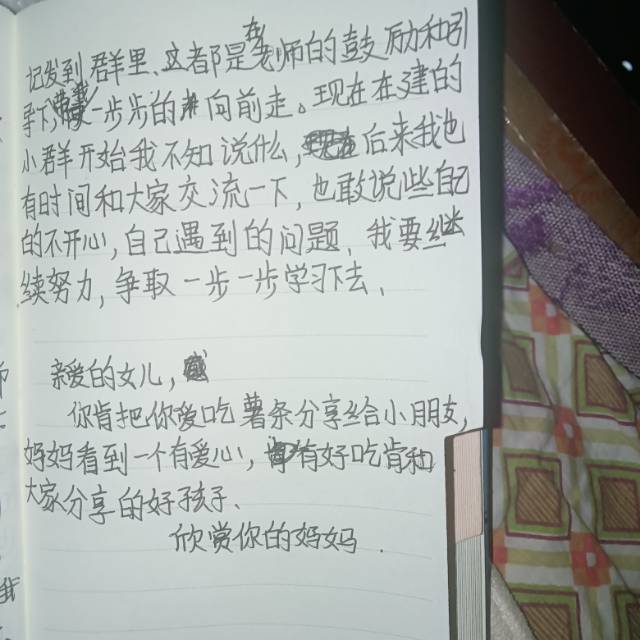 记发到群里、这都是在老师的鼓励和引
导下,一步步的向前走。现在在建的
小群开始我不知说什么,后来我也
有时间和大家交流一下,也敢说些自己
的不开心,自己遇到的问题、我要继
续努力,争取一步一步学习下去、
亲爱的女儿,
你肯把你爱吃薯条分享给小朋友,
妈妈看到一个有爱心,有好吃肯和
大家分享的好孩子、
欣赏你的妈妈.